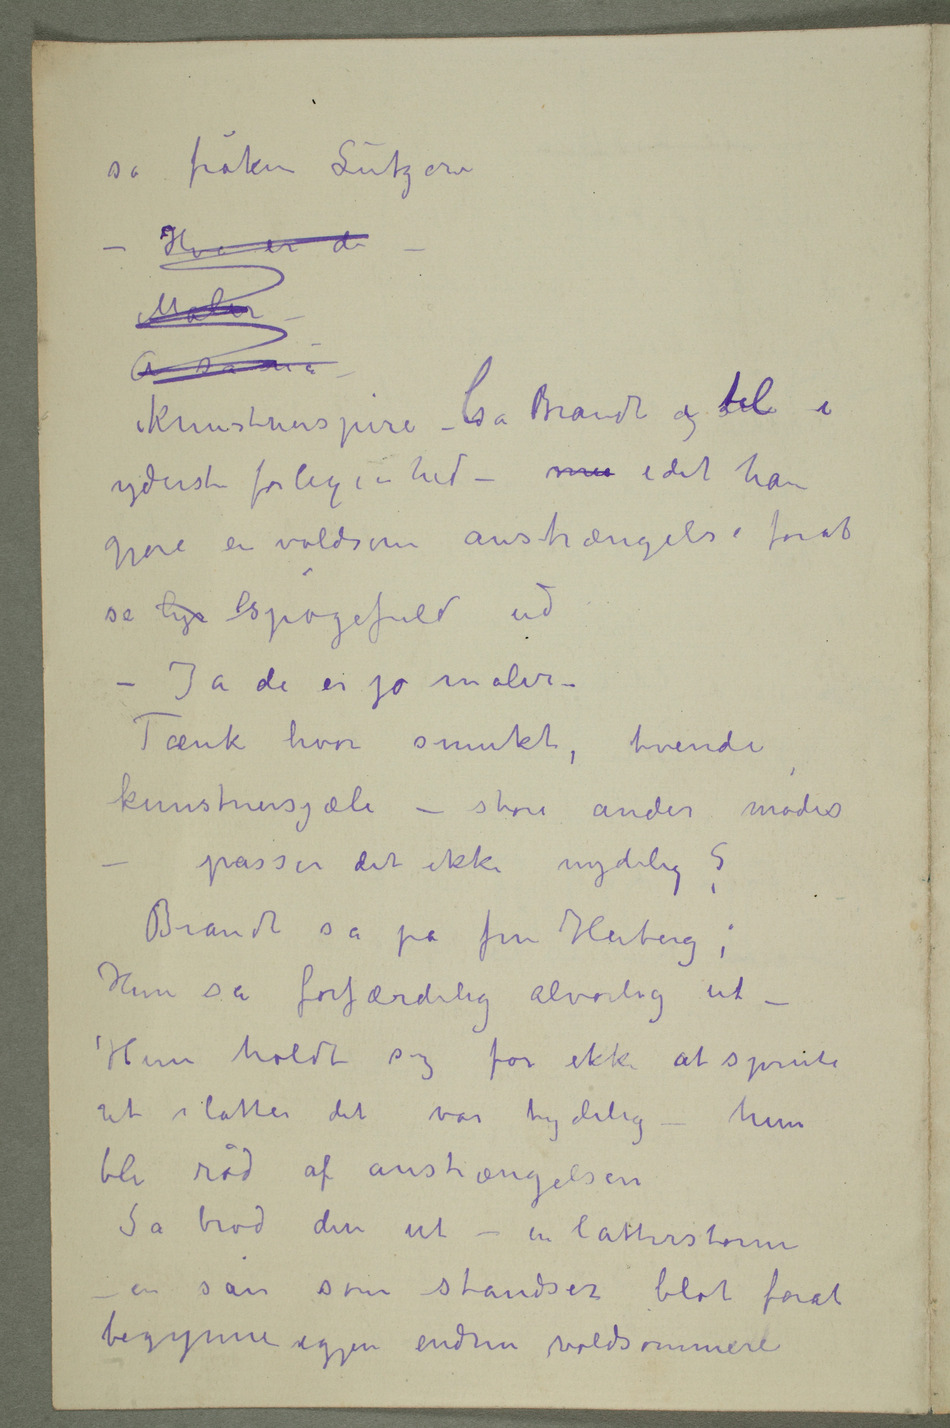 sa fröken Lützow
– Hva er de –
Maler –
A sa nei –
Kunstnerspire – sa Brandt og ble i
yderste forlegenhed – idet han
gjore en voldsom anstrængelse forat
se lys spögefuld ud
– Ja de er jo maler –
Tænk hvor smukt, tvende
kunstnersjæle – store ander mødes
– passer det ikke nydelig?
Brandt sa på fru Heiberg;
Hun sa forfærdelig alvorlig ut –
Hun holdt sig for ikke at sprute
ut i latter det var tydelig – hun
ble rød af anstrængelsen
Sa brød den ut – en latterstorm
– en sån som standser blot forat
begynne igjen endnu voldsommere